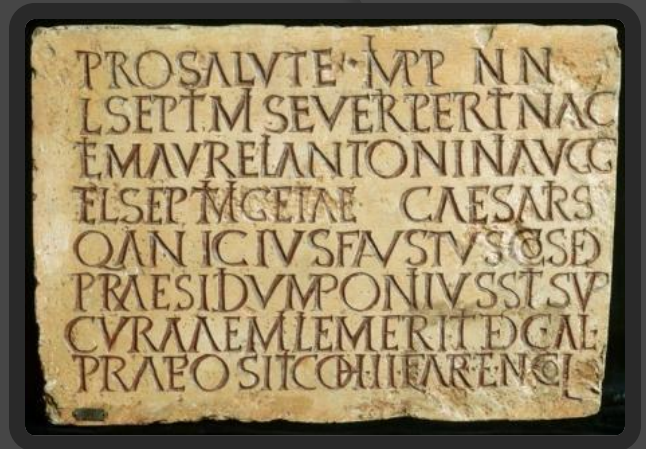 PRO SALVTE IMPP N N
L SEPTIMI SEVERI PERTINAC
ET M AVRELI ANTONINI AVGG
ET L SEPTIMI GETAE CAESARIS
Q ANICIVS FAVSTVS COS ED
PRAESIDIVM PONI IVSSIT SVP
CVRA AEMILI EMERITI D CAL
PRAEPOSIT COH III FAREN